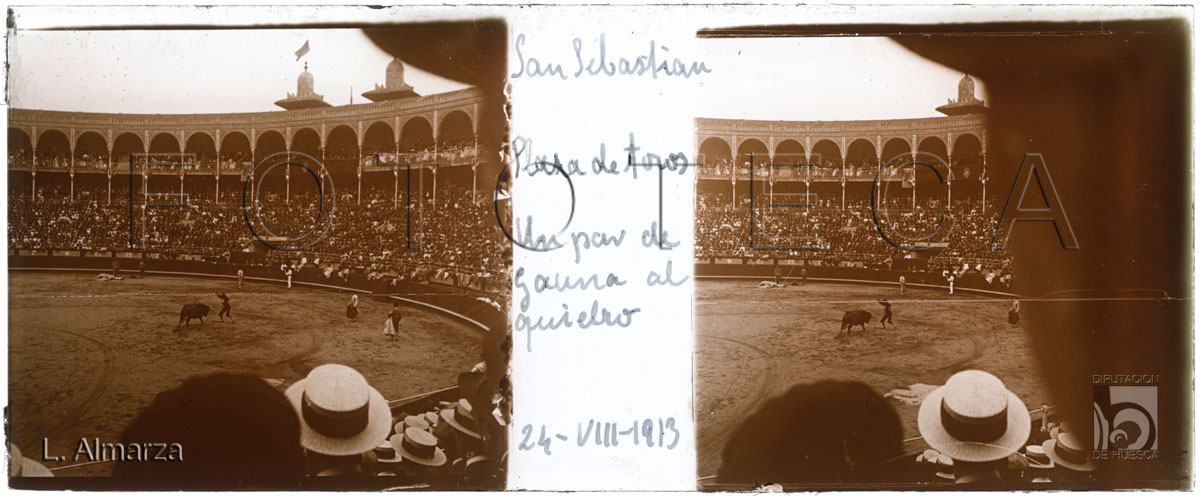 San Sebastian
Plaza de toros
Un par de
Gauna al
quiebro
24-VIII-1913
FOTOTECA
L. Almarza
DIPUTACION
DE HUESCA